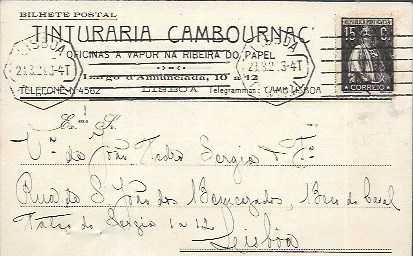 BILHETE POSTAL
TINTURARIA CAMBOURNAC
OFICINAS A VAPOR NA RIBEIRA DO PAPEL
Largo d'Annunciada, 10 a 12
TELEFONE N 4562 LISBOA Telegrammas: CAMB LISBOA
LISBOA
LISBOA
REPUBLICA PORTUGUESA
15 C.
CORREIO
Va de João Pedro Sergio &
Rua de S. João dos Bemcasados,
Pateo do Sergio 1 a 12
Lisbôa